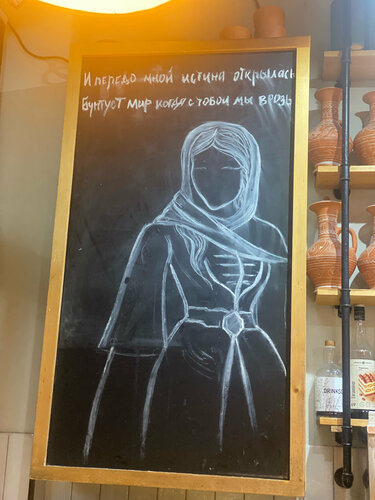 И передо мной истина открылась
Бунтует мир когда с тобой мы врозь
DRINKSO